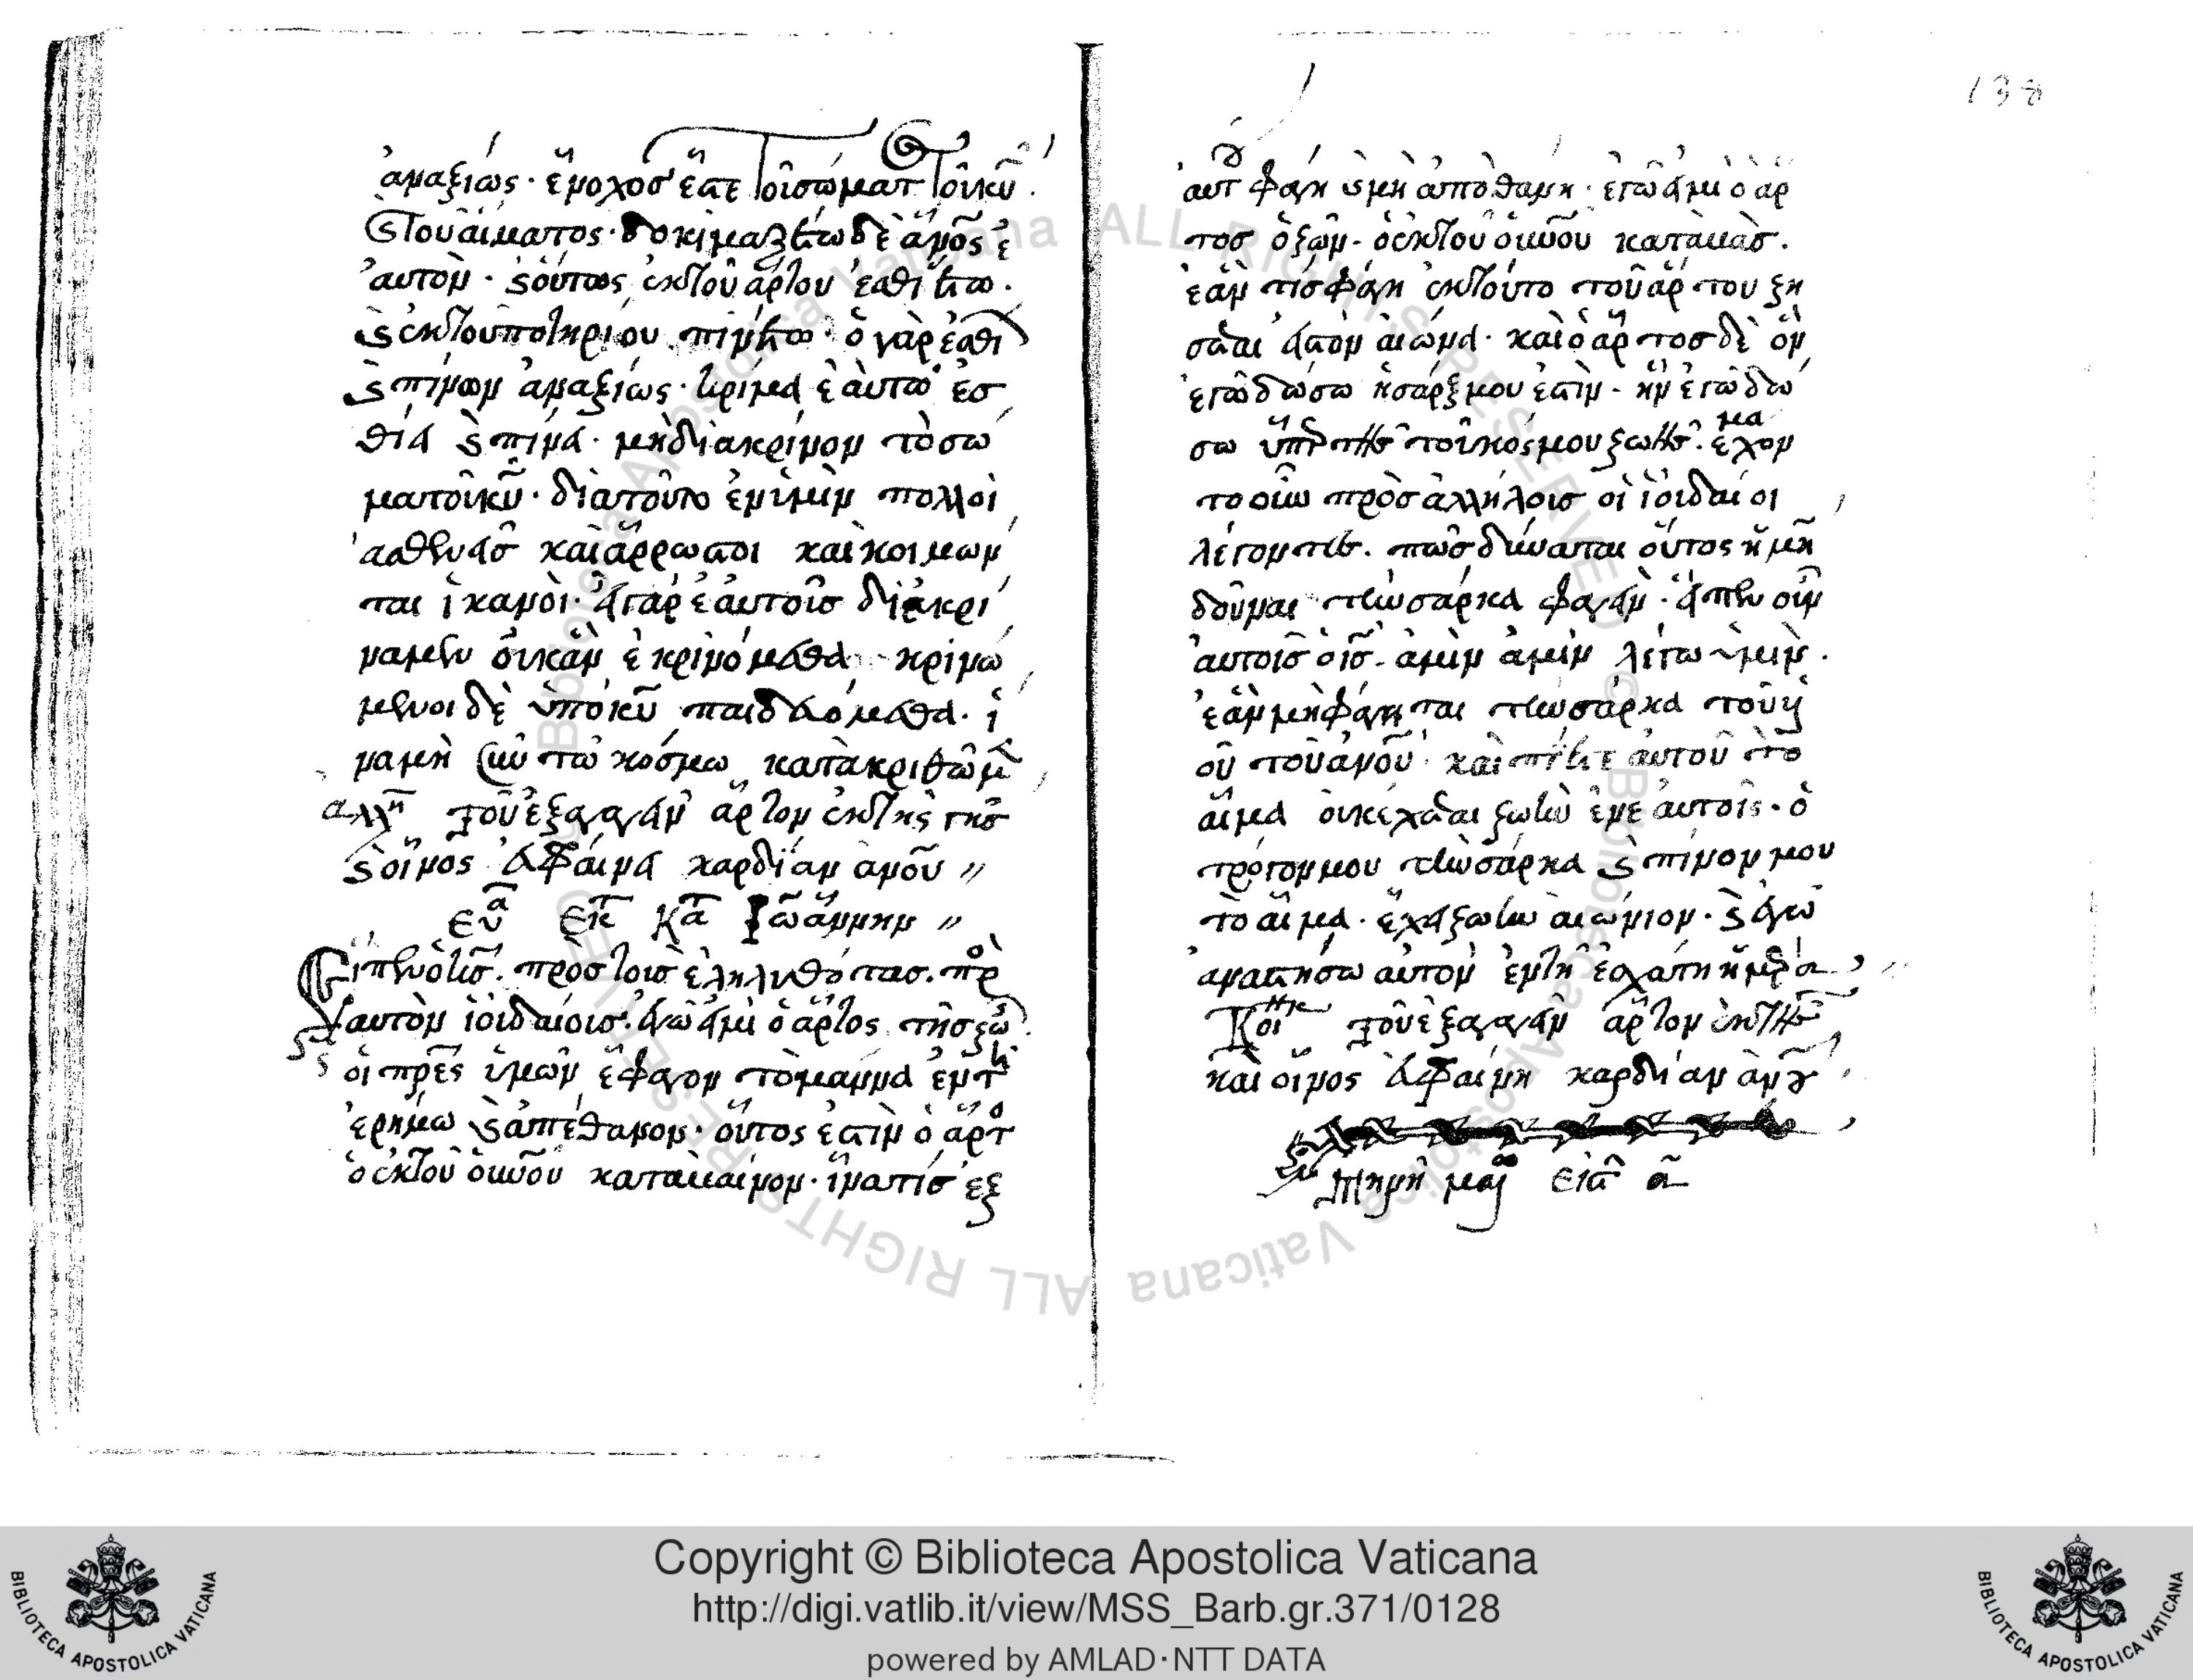 ἀναξίως· ἔνοχος ἔστε τοῦ σώματ τοῦ κυ̅.
ς τοῦ αἵματος· δοκιμαζέτω δὲ ἄνο̅ς ἑ
αυτὸν· ς οὕτως ἐκ τοῦ ἄρτου ἐσθιέτω.
ς ἐκ τοῦ ποτηρίου πινέτω· ὁ γὰρ ἐσθί
ς πίνων ἀναξίως· κρίμα ἑαυτῶ ἐσ
θίει ς πίνει· μὴ διακρίνον τὸ σώ
μα τοῦ κυ̅· διὰ τοῦτο ἐν ἱμὶν πολλοὶ
ἀσθενεῖς καὶ ἄρρωστοι καὶ κοιμῶν
ται ἱκανοὶ· εἰ γὰρ ἑαυτοῖς διεκρί
ναμεν οὐκ ἂν ἐκρινόμεθα κρινώ
μενοι δὲ ὑπὸ κυ̅ παιδευόμεθα· ἵ
να μὴ σὺν τῶ κόσμω κατακριθῶμ
αλλη τοῦ ἐξαγαγεῖν ἄρτον ἐκ τῆς γῆς
ς οἶνος εὐφραίνει καρδίαν ἀνου̅ //
ευα εκ κα Ιωάννην //
Εἶπεν ὁ ις̅. πρὸς τοῖς ἐληλυθότας. πρ
αυτὸν ἰοιδαίοις· ἐγώ εἰμι ὁ ἄρτος τῆς ζω
οἱ πρε̅ς ἱμῶν ἔφαγον τὸ μάννα ἐν τ
ἐρήμω ς ἀπέθανον· οὗτος ἐστὶν ὁ ἄρτ
ὁ ἐκ τοῦ οὐνου̅ καταβαίνον· ἵνα τίς ἐξ
138
αυτ φάγη ς μὴ ἀποθάνη· ἐγώ εἰμι ὁ ἄρ
τος ὁ ζῶν· ὁ ἐκ τοῦ οὐνου̅ καταβὰς.
ἐάν τίς φάγη ἐκ τούτο τοῦ ἄρτου ζή
σεται εἰς τὸν αἰῶνα· καὶ ὁ ἄρτος δὲ ὃν
ἐγὼ δώσω ἡ σάρξ μου ἐστὶν· ἣν ἐγὼ δώ
σω ὑπὲρ τῆς τοῦ κόσμου ζωῆς· ἐμάχον
το οὖν πρὸς ἀλλήλοις οἱ ἰοιδαίοι
λέγοντες· πῶς δύναται οὗτος ἡμὴ
δοῦναι τὴν σάρκα φαγεῖν· εἶπεν οὖν
αυτοῖς ὁ ις̅· ἀμὶν ἀμὶν λέγω ὑμὶν.
ἐὰν μὴ φάγηται τὴν σάρκα τοῦ υἱ
οῦ τοῦ ἀνου̅· καὶ πίετε αὐτοῦ τὸ
αἷμα οὐκ ἔχεται ζωὴν ἐν ἑαυτοῖς· ὁ
τρόγον μου τὴν σάρκα ς πίνον μου
τὸ αἷμα· ἔχει ζωὴν αἰώνιον· ς ἐγὼ
ἀναστήσω αὐτὸν ἐν τῆ ἐσχάτη ἡμέρα
Κοι τοῦ ἐξαγαγεῖν ἄρτον ἐκ τῆς
καὶ οἶνος εὐφραίνη καρδίαν ἀνου
Copyright © Biblioteca Apostolica Vaticana
http://digi.vatlib.it/view/MSS_Barb.gr.371/0128
powered by AMLAD·NTT DATA
BIBLIOTECA APOSTOLICA VATICANA
BIBLIOTECA APOSTOLICA VATICANA